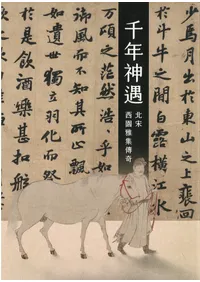 少焉月出於東山之上裴回
於斗牛之間白露橫江水
千年神遇
北宋
西園雅集傳奇
萬頃之茫然浩乎如
御風而不知其飄
如遺世獨立羽化而
於是飲酒樂甚扣舷